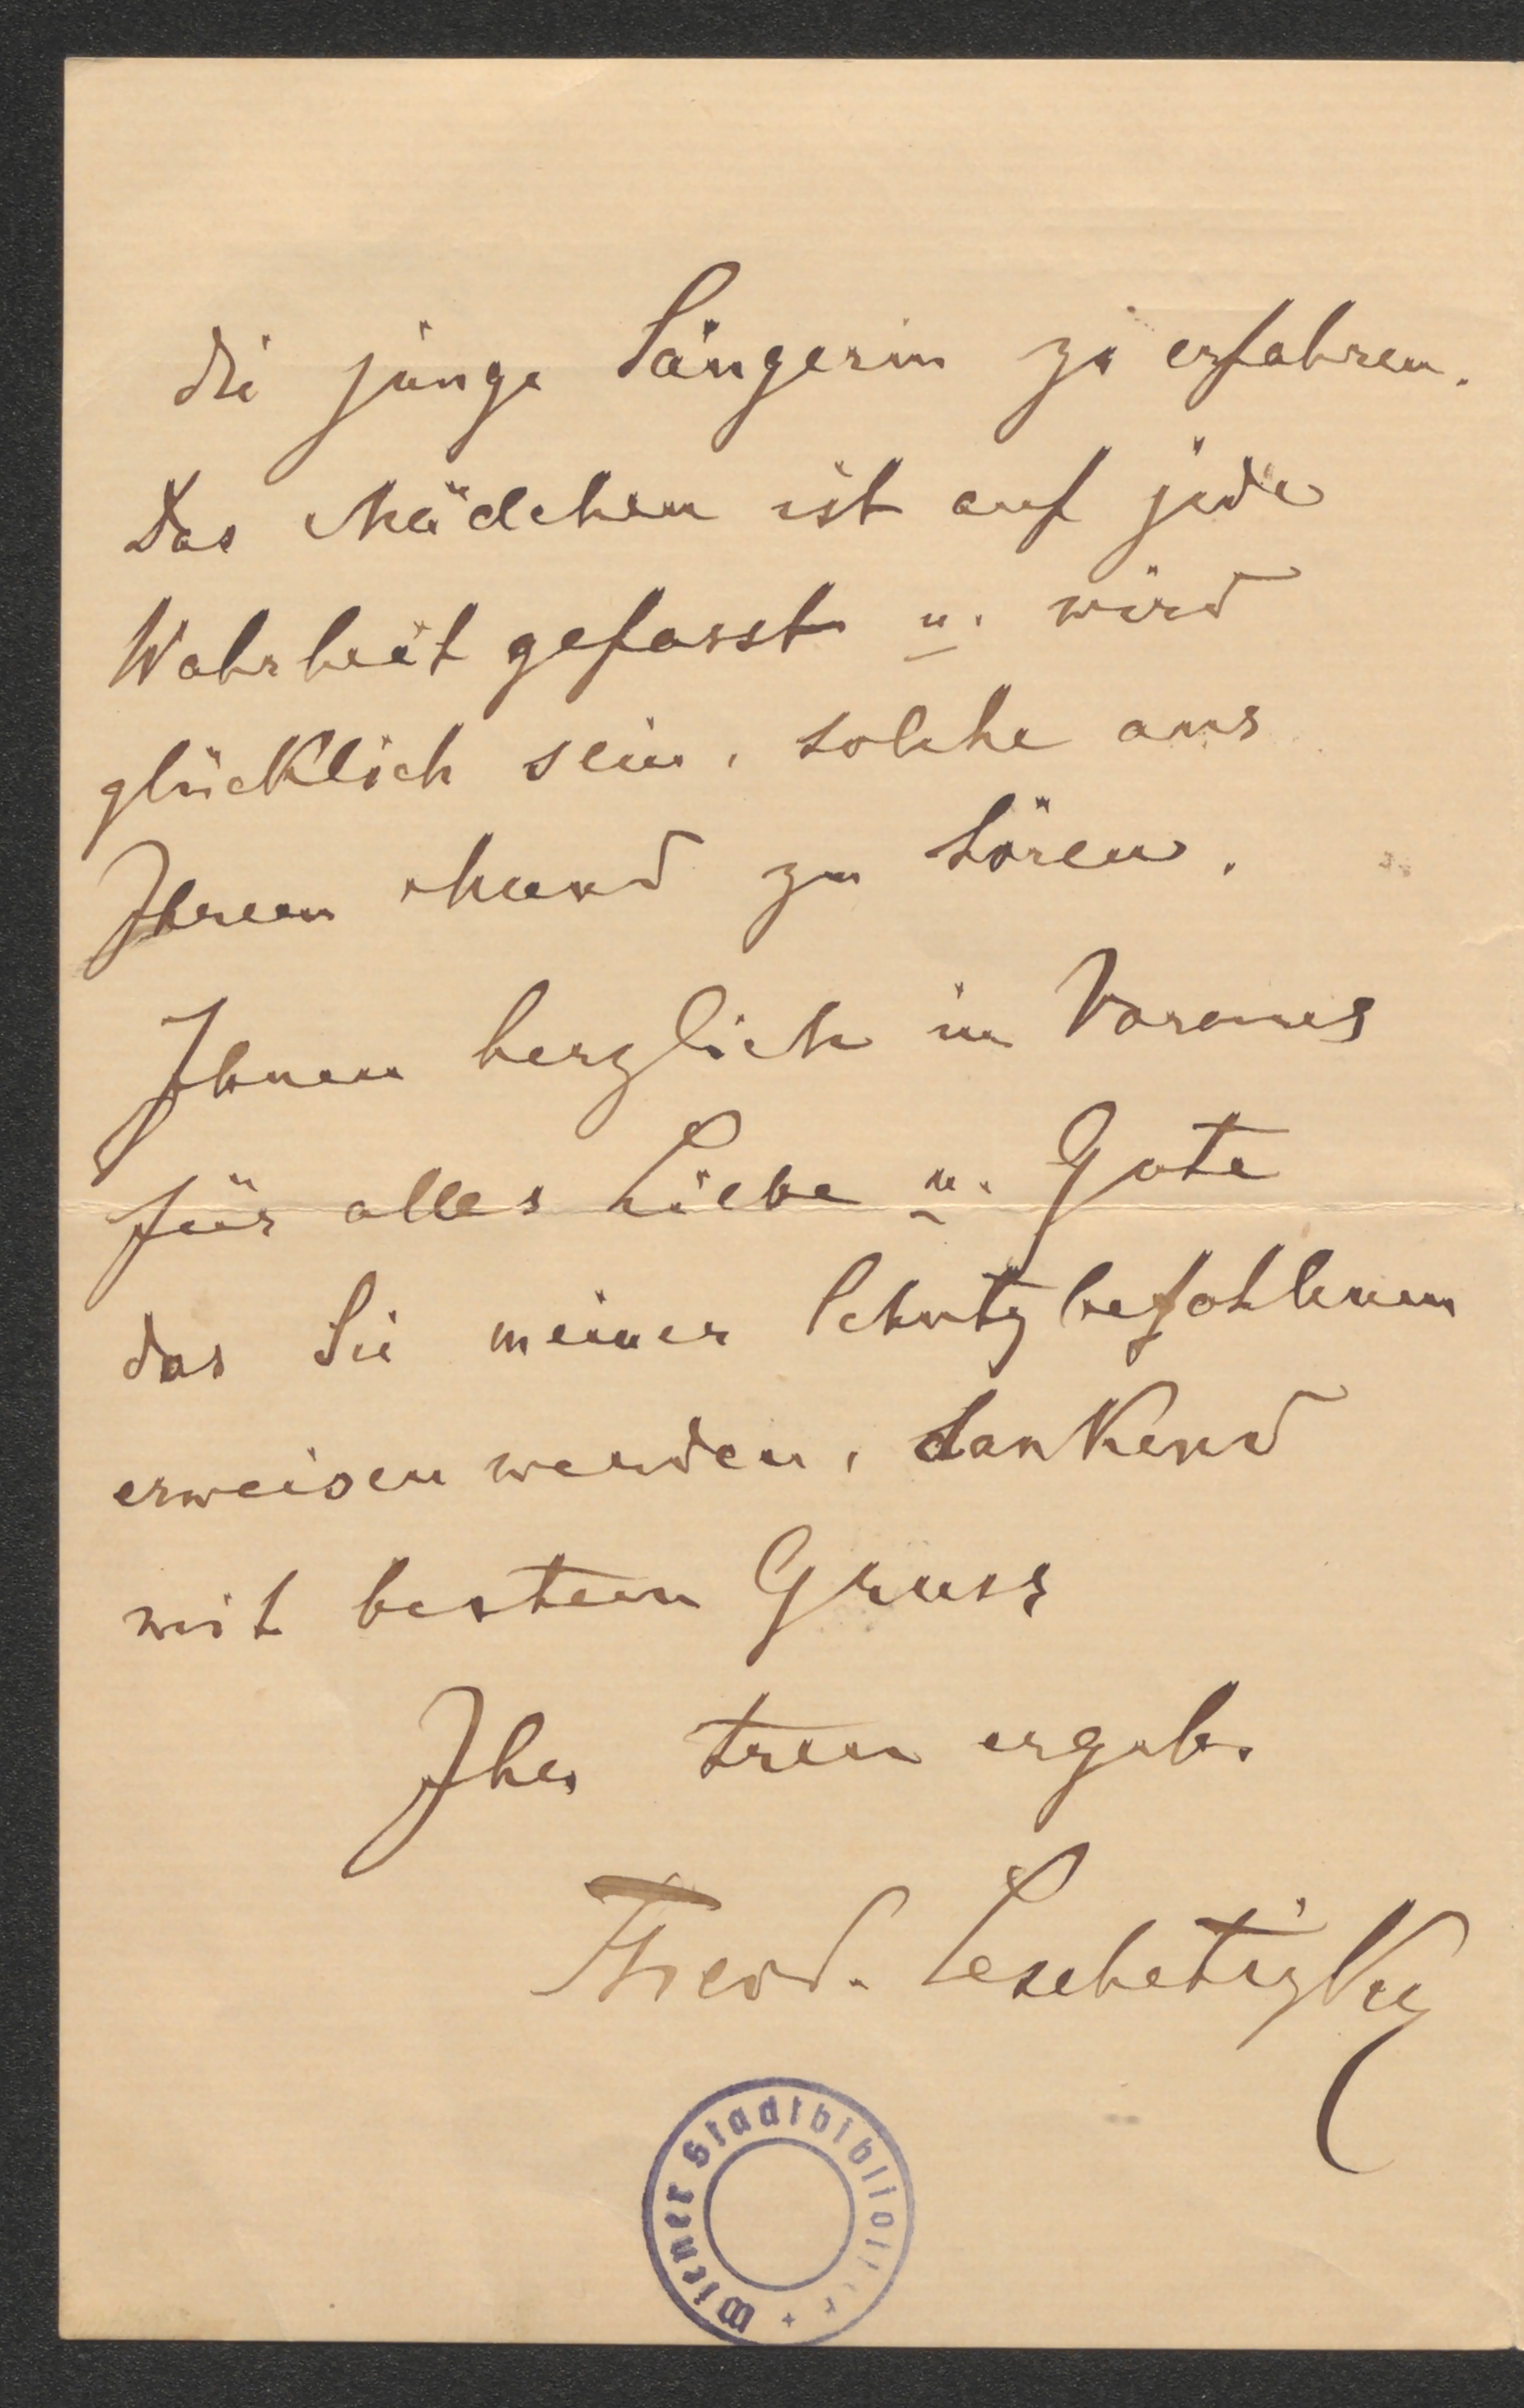 die junge Sängerin zu erfahren.
Das Mädchen ist auf jede
Wahrheit gefasst u. wird
glücklich sein, solche aus
Ihrem Mund zu hören.
Ihnen herzlich im Voraus
für alles Liebe u. Gute
das Sie meiner Schutzbefohlenen
erweisen werden, dankend
mit bestem Gruss
Ihr treu ergeb.
Theod. Leschetizky
Wiener Stadtbibliothek